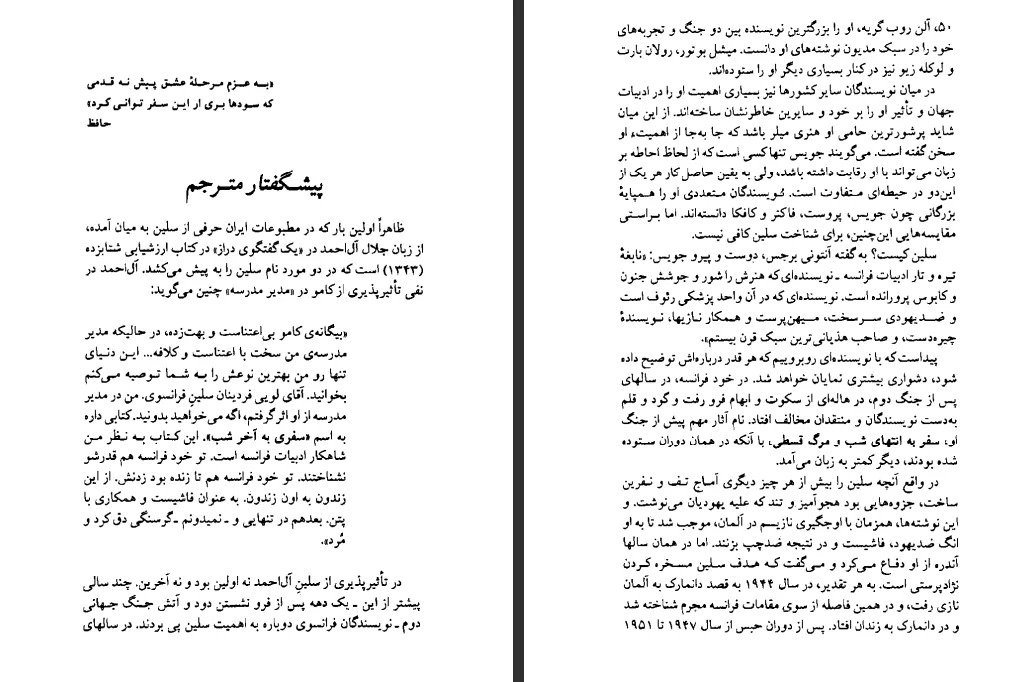 «به عزم مرحلهٔ عشق پیش نه قدمی
که سودها بری ار این سفر توانی کرد»
حافظ
پیشگفتار مترجم
ظاهراً اولین بار که در مطبوعات ایران حرفی از سلین به میان آمده،
از زبان جلال آل‌احمد در «یک گفتگوی دراز» در کتاب ارزشیابی شتابزده
(۱۳۴۳) است که در دو مورد نام سلین را به پیش می‌کشد. آل‌احمد در
نفی تأثیرپذیری از کامو در «مدیر مدرسه» چنین می‌گوید:
«بیگانه‌ی کامو بی‌اعتناست و بهت‌زده، در حالیکه مدیر
مدرسه‌ی من سخت با اعتناست و کلافه... این دنیای
تنها رو من بهترین نوعش را به شما توصیه می‌کنم
بخوانید. آقای لویی فردینان سلینِ فرانسوی. من در مدیر
مدرسه از او اثر گرفتم، اگه می‌خواهید بدونید. کتابی داره
به اسم «سفری به آخر شب». این کتاب به نظر من
شاهکار ادبیات فرانسه است. تو خود فرانسه هم قدرشو
نشناختند. تو خود فرانسه هم تا زنده بود زدنش. از این
زندون به اون زندون. به عنوان فاشیست و همکاری با
پتن. بعدهم در تنهایی و ـ نمیدونم ـ گرسنگی دق کرد و
مُرد».
در تأثیرپذیری از سلین آل‌احمد نه اولین بود و نه آخرین. چند سالی
پیشتر از این ـ یک دهه پس از فرو نشستن دود و آتش جنگ جهانی
دوم ـ نویسندگان فرانسوی دوباره به اهمیت سلین پی بردند. در سالهای
۵۰، آلن روب‌گریه، او را بزرگترین نویسنده بین دو جنگ و تجربه‌های
خود را در سبک مدیون نوشته‌های او دانست. میشل بوتور، رولان بارت
و لوکله زیو نیز در کنار بسیاری دیگر او را ستوده‌اند.
در میان نویسندگان سایر کشورها نیز بسیاری اهمیت او را در ادبیات
جهان و تأثیر او را بر خود و سایرین خاطرنشان ساخته‌اند. از این میان
شاید پرشورترین حامی او هنری میلر باشد که جا به‌جا از اهمیت او
سخن گفته است. می‌گویند جویس تنها کسی است که از لحاظ احاطه بر
زبان می‌تواند با او رقابت داشته باشد، ولی به یقین حاصل کار هر یک از
این‌دو در حیطه‌ای متفاوت است. نویسندگان متعددی او را همپایهٔ
بزرگانی چون جویس، پروست، فاکنر و کافکا دانسته‌اند. اما براستی
مقایسه‌هایی این‌چنین، برای شناخت سلین کافی نیست.
سلین کیست؟ به گفته آنتونی برجس، دوست و پیرو جویس: «نابغهٔ
تیره و تار ادبیات فرانسه ـ نویسنده‌ای که هنرش را شور و جوشش جنون
و کابوس پرورانده است. نویسنده‌ای که در آن واحد پزشکی رئوف است
و ضدیهودی سرسخت، میهن‌پرست و همکار نازیها، نویسندهٔ
چیره‌دست، و صاحب هذیانی‌ترین سبک قرن بیستم».
پیداست که با نویسنده‌ای روبروییم که هر قدر درباره‌اش توضیح داده
شود، دشواری بیشتری نمایان خواهد شد. در خود فرانسه، در سالهای
پس از جنگ دوم، در هاله‌ای از سکوت و ابهام فرو رفت و گرد و قلم
به‌دست نویسندگان و منتقدان مخالف افتاد. نام آثار مهم پیش از جنگ
او، سفر به انتهای شب و مرگ قسطی، با آنکه در همان دوران ستوده
شده بودند، دیگر کمتر به زبان می‌آمد.
در واقع آنچه سلین را بیش از هر چیز دیگری آماج تف و نفرین
ساخت، جزوه‌هایی بود هجوآمیز و تند که علیه یهودیان می‌نوشت. و
این نوشته‌ها، همزمان با اوجگیری نازیسم در آلمان، موجب شد تا به او
انگ ضدیهود، فاشیست و در نتیجه ضدچپ بزنند. اما در همان سالها
آندره از او دفاع می‌کرد و می‌گفت که هدف سلین مسخره کردن
نژادپرستی است. به هر تقدیر، در سال ۱۹۴۴ به قصد دانمارک به آلمان
نازی رفت، و در همین فاصله از سوی مقامات فرانسه مجرم شناخته شد
و در دانمارک به زندان افتاد. پس از دوران حبس از سال ۱۹۴۷ تا ۱۹۵۱